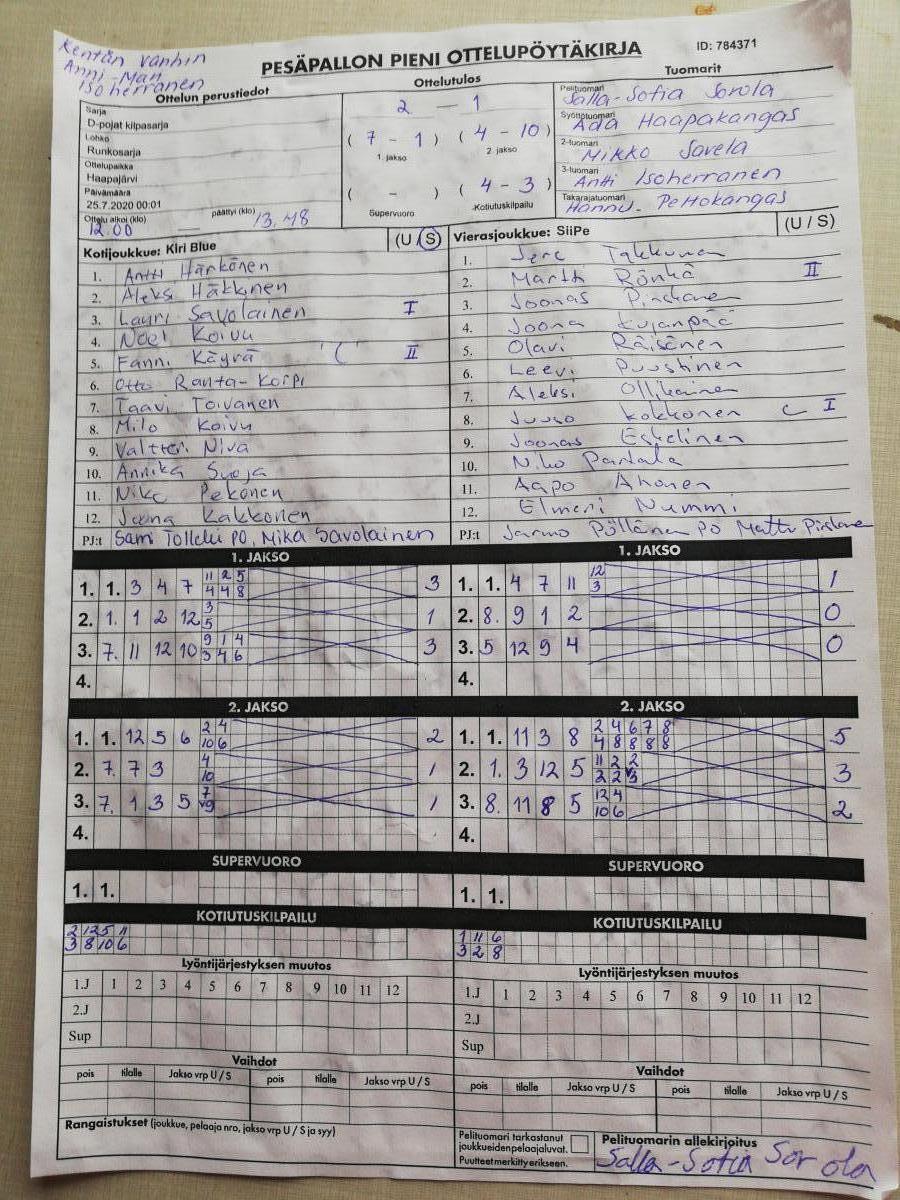 Kentän vanhin
Anni-Mari
Isoherranen
PESÄPALLON PIENI OTTELUPÖYTÄKIRJA
ID: 784371
Ottelun perustiedot
Sarja
D-pojat kilpasarja
Lohko
Runkosarja
Ottelupaikka
Haapajärvi
Päivämäärä
25.7.2020 00:01
Ottelu alkoi (klo) päättyi (klo)
12.00 13.48
Ottelutulos
2 - 1
( 7 - 1 ) ( 4 - 10 )
1. jakso 2. jakso
( - ) ( 4 - 3 )
Supervuoro Kotiutuskilpailu
Tuomarit
Pelituomari
Salla-Sofia Sorola
Syöttötuomari
Ada Haapakangas
2-tuomari
Mikko Savela
3-tuomari
Antti Isoherranen
Takarajatuomari
Hannu Peltokangas
Kotijoukkue: Kiri Blue (U / S)
1. Antti Härkönen
2. Aleksi Häkkinen
3. Lauri Savolainen I
4. Noel Koivu
5. Fanni Käyrä C II
6. Otto Ranta-Korpi
7. Taavi Toivanen
8. Milo Koivu
9. Valtteri Niva
10. Annika Suoja
11. Niko Pekonen
12. Joona Kakkonen
PJ:t Sami Tollelu PO, Mika Savolainen
Vierasjoukkue: SiiPe (U / S)
1. Jere Takkunen
2. Martti Rönkä II
3. Joonas Pirskanen
4. Joona Kujanpää
5. Olavi Räisänen
6. Leevi Puustinen
7. Aleksi Ollikainen
8. Juuso Kokkonen C I
9. Joonas Eskelinen
10. Niko Partala
11. Aapo Ahonen
12. Elmeri Nummi
PJ:t Jarmo Pöllänen PO Mattu Pirskanen
1. JAKSO
1. 1. 3 4 7 11 2 5 3
4 4 8
2. 1. 1 2 12 3 1
5
3. 7. 11 12 10 9 1 4 3
3 4 6
4.
1. JAKSO
1. 1. 4 7 11 12 1
3
2. 8. 9 1 2 0
3. 5 12 9 4 0
4.
2. JAKSO
1. 1. 12 5 6 2 4 2
10 6
2. 7. 7 3 4 1
10
3. 7. 1 3 5 7 1
v9
4.
2. JAKSO
1. 1. 11 3 8 2 4 6 7 8 5
4 8 8 8 8
2. 1. 3 12 5 11 2 2 3
2 2 v3
3. 8. 11 8 5 12 4 2
10 6
4.
SUPERVUORO
1. 1.
SUPERVUORO
1. 1.
KOTIUTUSKILPAILU
2 12 5 11
3 8 10 6
KOTIUTUSKILPAILU
1 11 6
3 2 8
Lyöntijärjestyksen muutos
1.J 1 2 3 4 5 6 7 8 9 10 11 12
2.J
Sup
Lyöntijärjestyksen muutos
1.J 1 2 3 4 5 6 7 8 9 10 11 12
2.J
Sup
Vaihdot
pois tilalle Jakso vrp U / S pois tilalle Jakso vrp U / S
Vaihdot
pois tilalle Jakso vrp U / S pois tilalle Jakso vrp U / S
Rangaistukset (joukkue, pelaaja nro, jakso vrp U / S ja syy)
Pelituomari tarkastanut
joukkueiden pelaajaluvat.
Puutteet merkitty erikseen.
Pelituomarin allekirjoitus
Salla-Sofia Sorola